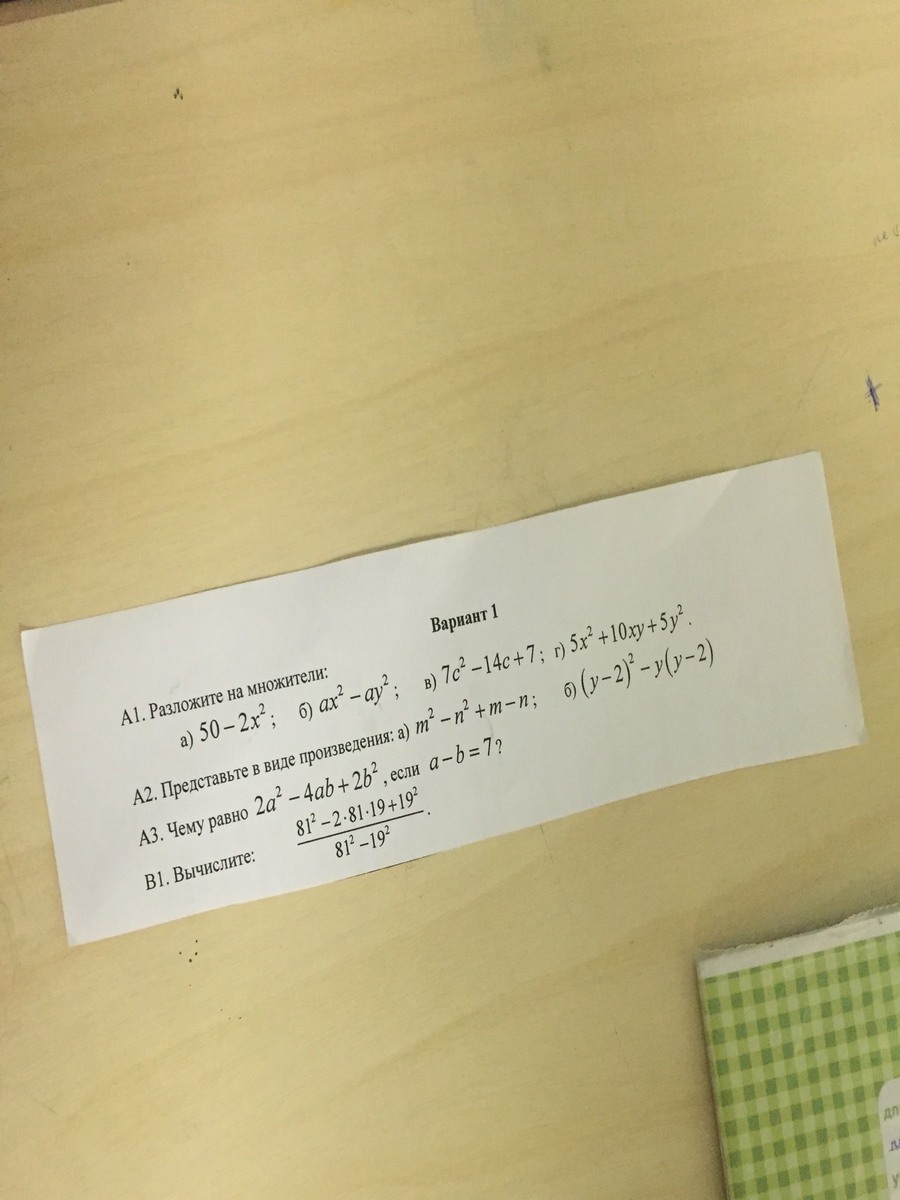 Вариант 1
А1. Разложите на множители:
а) 50 − 2x²; б) ax² − ay²; в) 7c² − 14c + 7; г) 5x² + 10xy + 5y².
А2. Представьте в виде произведения: а) m² − n² + m − n; б) (y − 2)² − y(y − 2)
А3. Чему равно 2a² − 4ab + 2b², если a − b = 7?
В1. Вычислите: (81² − 2·81·19 + 19²)/(81² − 19²).